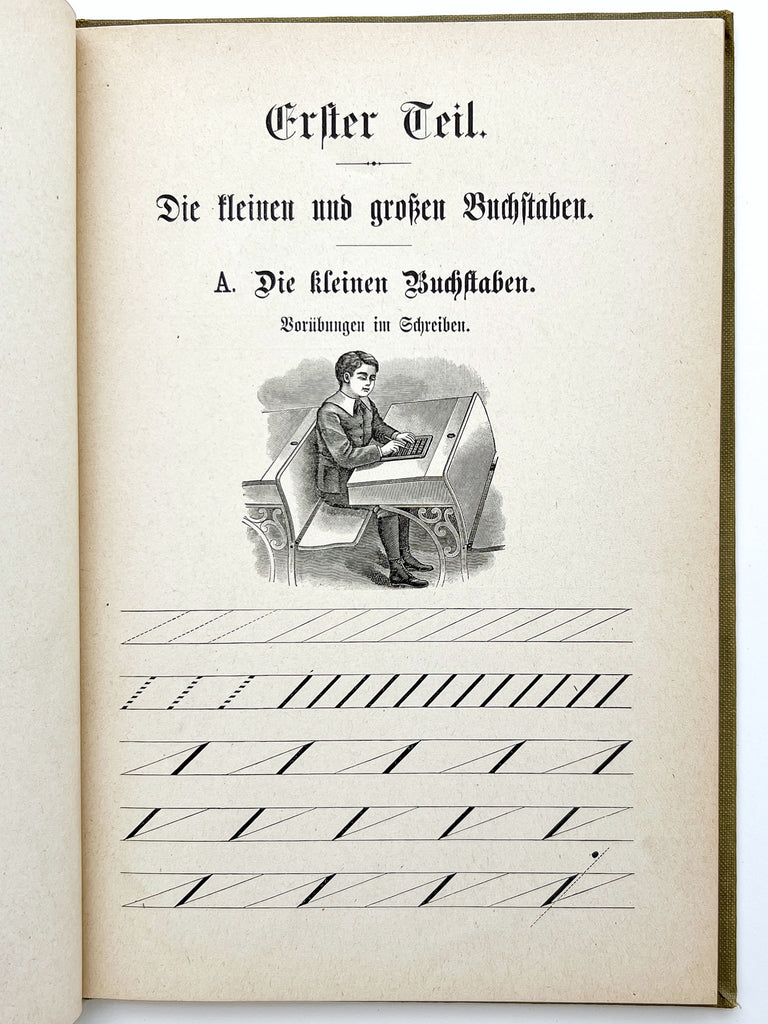 Erster Teil.
Die kleinen und großen Buchstaben.
A. Die kleinen Buchstaben.
Vorübungen im Schreiben.